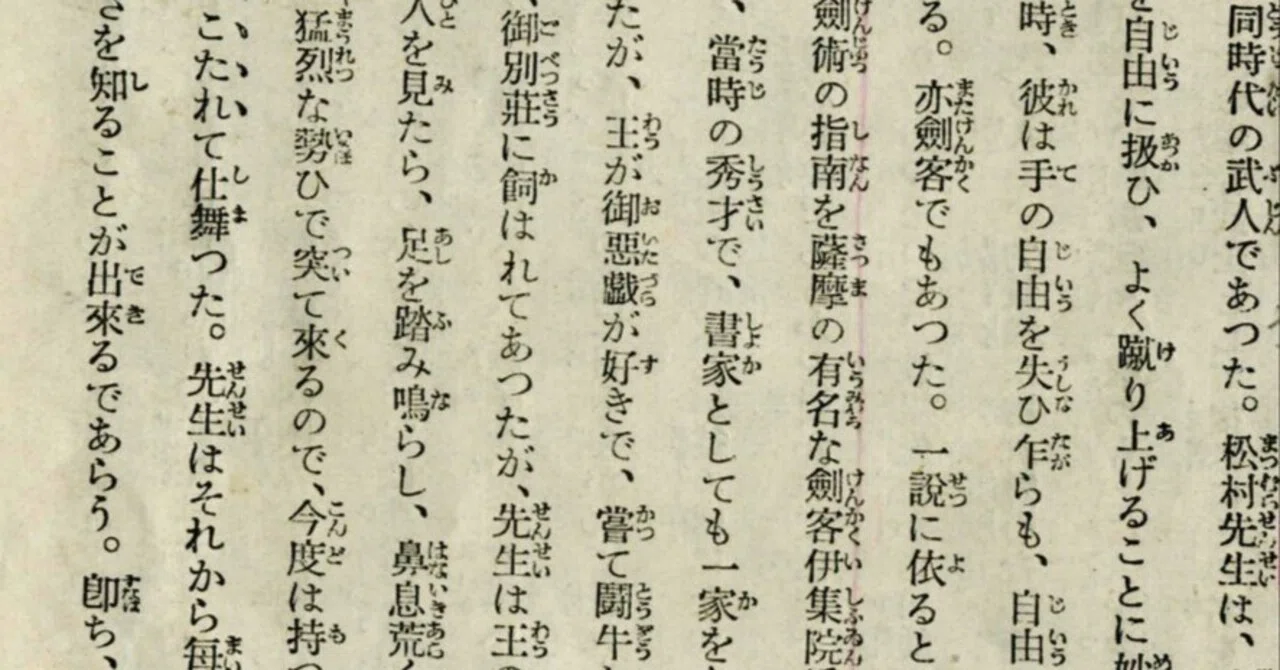 同時代の武人であつた。松村先生は、
を自由に扱ひ、よく蹴り上げることに妙
時、彼は手の自由を失ひ乍らも、自由
る。亦劍客でもあつた。一説に依ると
劍術の指南を薩摩の有名な劍客伊集院
、當時の秀才で、書家としても一家を
たが、王が御惡戯が好きで、嘗て鬪牛
、御別莊に飼はれてあつたが、先生は王の
人を見たら、足を踏み鳴らし、鼻息荒く
猛烈な勢ひで突て來るので、今度は持つ
こたれて仕舞つた。先生はそれから每
さを知ることが出來るであらう。卽ち、